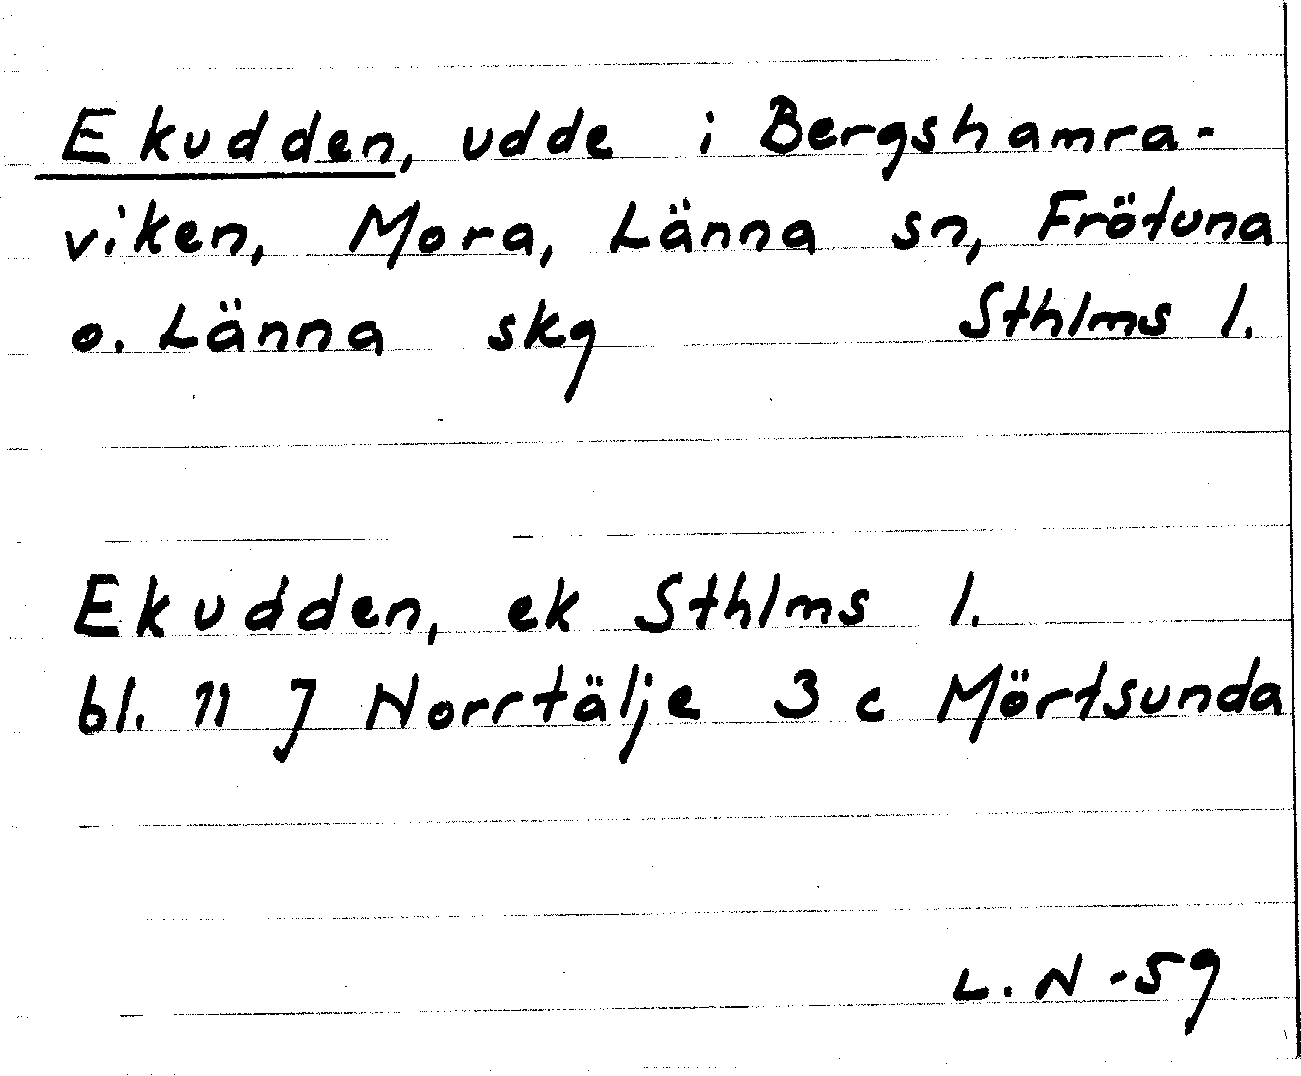 Ekudden, udde i Bergshamra-
viken, Mora, Länna sn, Frötuna
o. Länna skg Sthlms l.
Ekudden, ek Sthlms l.
bl. 11 J Norrtälje 3 c Mörtsunda
L. N -59